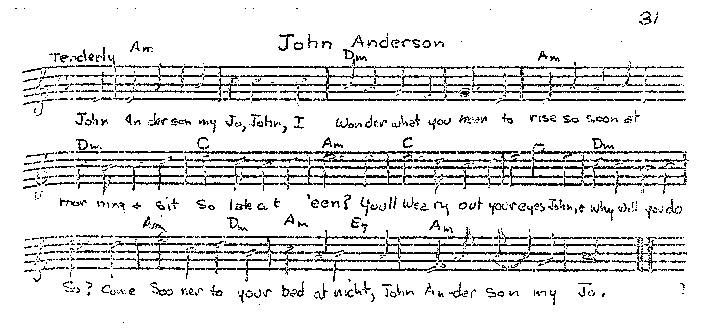 31
John Anderson
Tenderly Am Dm Am
John An der son my Jo, John, I wonder what you mean to rise so soon at
Dm C Am C Dm
mor ning + sit so late at 'een? You'll wea ry out your eyes John, + why will you do
Am Dm Am E7 Am
So? Come Soo ner to your bed at nicht, John An-der son my Jo.